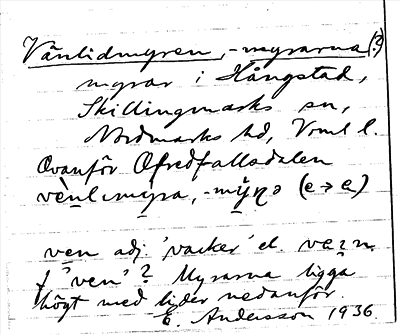 Vänlidmyren, -myrarna (?)
myrar i Hångstad,
Skillingmarks sn,
Nordmarks hd, Vrml l.
Ovanför Öfredfallsdalen
vènlɩmýra, -mýɳə (e → e)
ven adj. 'vacker' el.
f 'ven'? Myrarna ligga
högt med lider nedanför.
E. Andersson 1936.